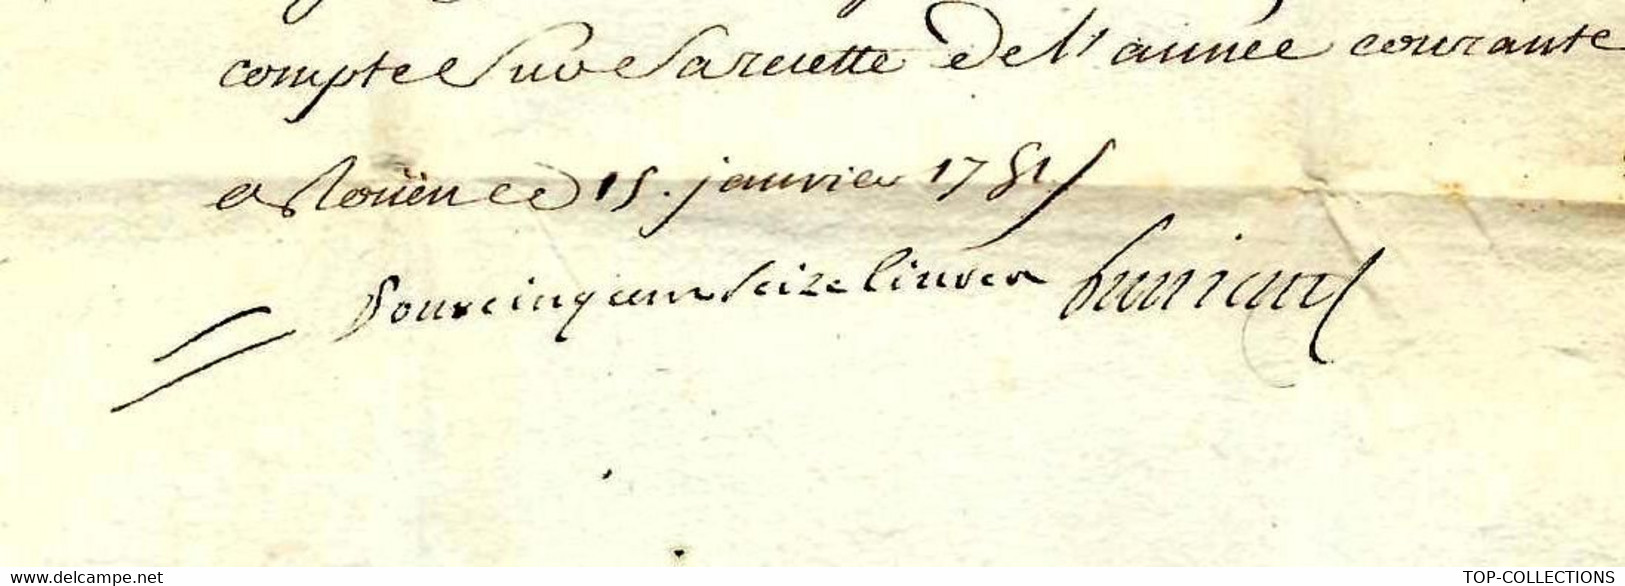 compte sur sa recette de l'année courante
a Roüen ce 15. janvier 1751
Pour cinq cent seize livres
www.delcampe.net
TOP-COLLECTIONS